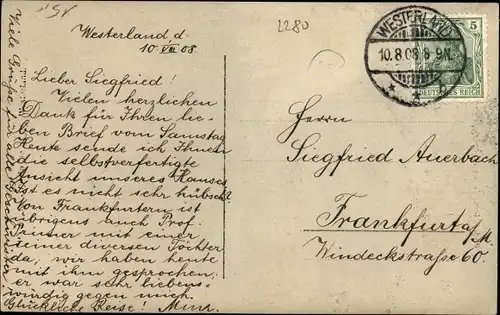 2280
Westerland d.
10. VIII 08.
Lieber Siegfried!
Vielen herzlichen
Dank für Ihren lie-
ben Brief vom Samstag
Heute sende ich Ihnen
die selbstverfertigte
Ansicht unseres Hauses
Ist es nicht sehr hübsch?
Von Frankfurtern ist
übrigens auch Prof.
Primer mit einer
seiner diversen Töchter
da; wir haben heute
mit ihm gesprochen;
er war sehr liebens-
würdig gegen mich.
Glückliche Reise!
Viele Grüße für alle
WESTERLAND
10.8.08.8-9N.
5
DEUTSCHES REICH
Herrn
Siegfried Auerbach
Frankfurt a/M.
Windeckstraße 60.